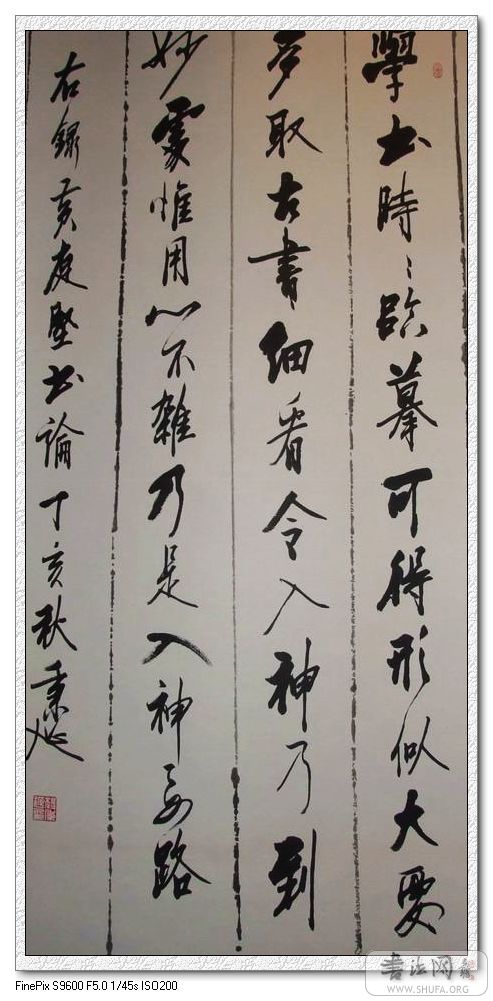 學书時〻臨摹可得形似大要
多取古書細看令入神乃到
妙處惟用心不雜乃是入神要路
右録黄庭堅书論丁亥秋
FinePix S9600 F5.0 1/45s ISO200
书法网
WWW.SHUFA.ORG